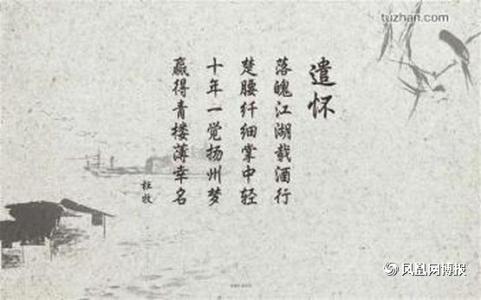 tuzhan.com
遣怀
落魄江湖载酒行
楚腰纤细掌中轻
十年一觉扬州梦
赢得青楼薄幸名
杜牧
凤凰网博报